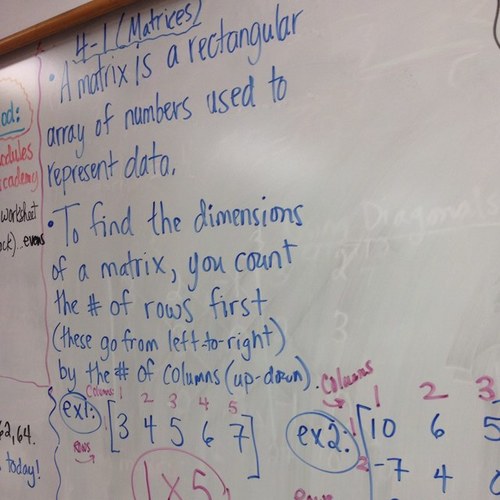 4-1 (Matrices)
• A matrix is a rectangular
array of numbers used to
represent data.
• To find the dimensions
of a matrix, you count
the # of rows first
(these go from left-to-right)
by the # of columns (up-down).
Columns 1 2 3 4 5
ex1: [3 4 5 6 7]
rows →
1 x 5
Columns →
1 2 3
ex2: 1 [10 6 5
2 -7 4
rows
worksheet
evens
62, 64.
today!